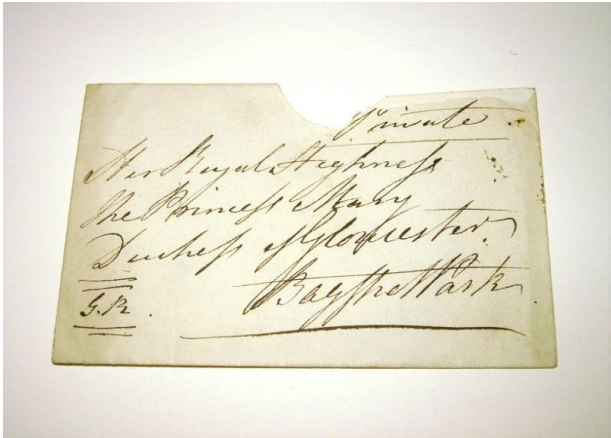 Private
Her Royal Highneſs
The Princeſs Mary
Ducheſs of Gloucester
Bagſhot Park
G.R.